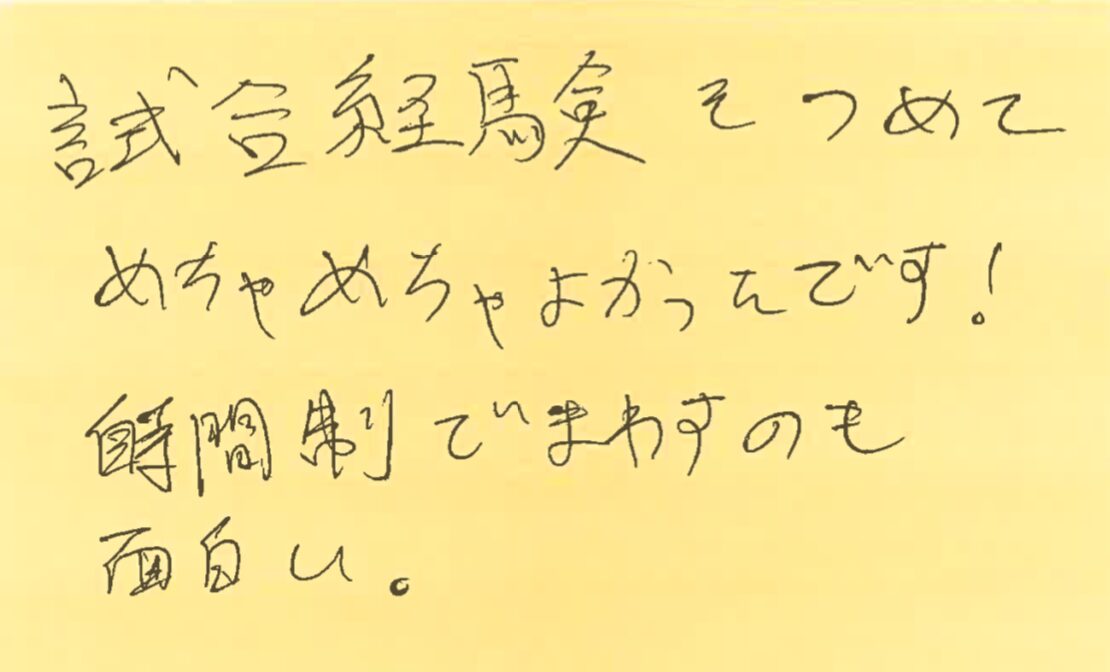 試合経験そつめて
めちゃめちゃよかったです!
時間制でまわすのも
面白い。